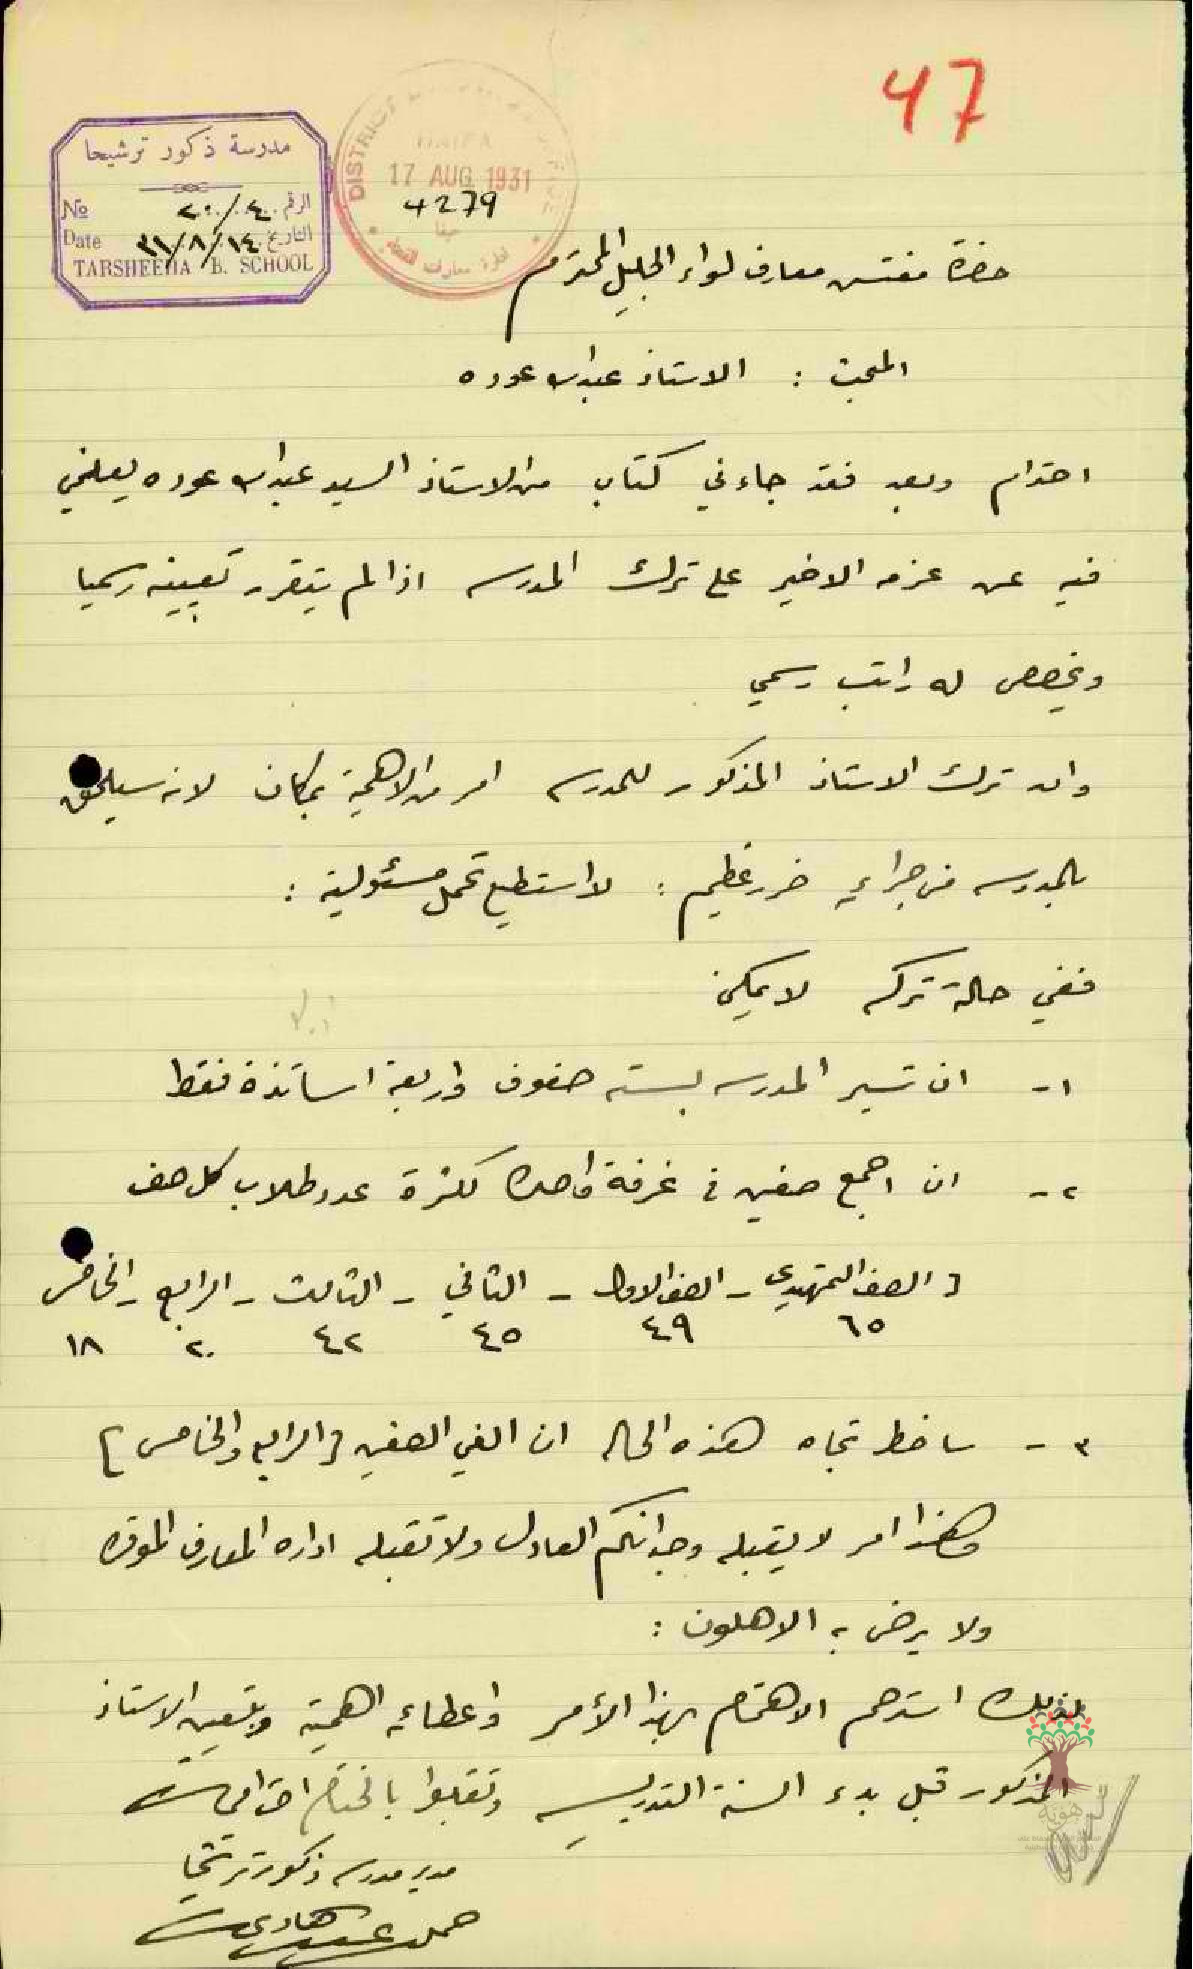 47
مدرسة ذكور ترشيحا
No ٢٠/٤٠ الرقم
Date ٣١/٨/١٤ التاريخ
TARSHEEHA B. SCHOOL
DISTRICT
HAIFA
17 AUG 1931
4279
حيفا
حضرة مفتش معارف لواء الجليل المحترم
المبحث : الاستاذ عبدالله عوده
احترام وبعد فقد جاءني كتاب من الاستاذ السيد عبدالله عوده يعلمني
فيه عن عزمه الاخير على ترك المدرسه اذا لم يتقرر تعيينه رسميا
ويخصص له راتب رسمي
وان ترك الاستاذ المذكور للمدرسه امر من الاهمية بمكان لانه سيلحق
بالمدرسه من جرائه ضرر عظيم : لا استطيع تحمل مسئولية :
ففي حالة تركه لا يمكن
١- ان تسير المدرسه بسته صفوف واربعة اساتذة فقط
٢- ان اجمع صفين في غرفة واحده لكثرة عدد طلاب كل صف
[ الصف التمهيدي - الصف الاول - الثاني - الثالث - الرابع - الخامس
٦٥ ٤٩ ٤٥ ٤٢ ٢٠ ١٨
٣- ساضطر تجاه هذه الحاله ان الغي الصفين [ الرابع والخامس ]
وهذا امر لا يقبله وجدانكم العادل ولا تقبله اداره المعارف الموقره
ولا يرضى به الاهلون :
لذلك استرحم الاهتمام بهذا الأمر واعطائه اهمية وبتعيين الاستاذ
المذكور قبل بدء السنة التدريسيه وتقبلوا بالختام احترامي
مدير مدرسه ذكور ترشيحا
هوية